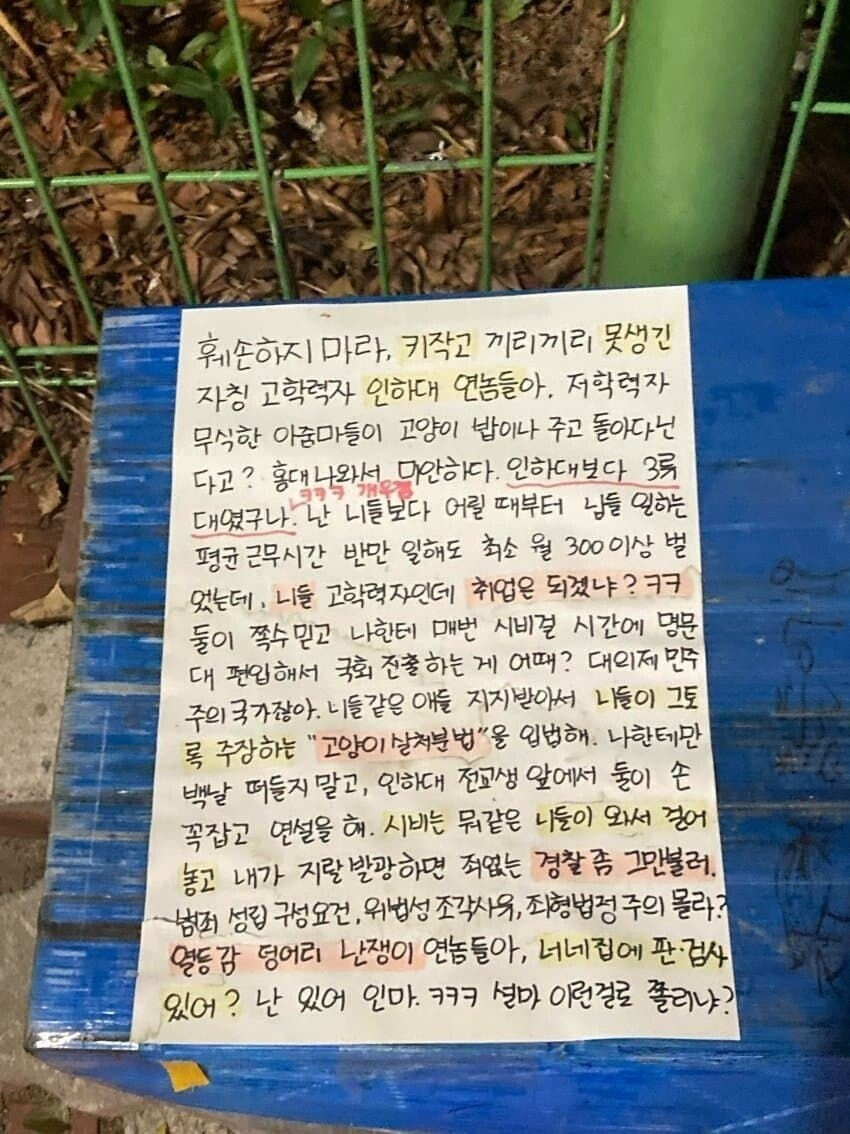 훼손하지 마라, 키작고 끼리끼리 못생긴
자칭 고학력자 인하대 연놈들아. 저학력자
무식한 아줌마들이 고양이 밥이나 주고 돌아다닌
다고? 홍대나와서 미안하다. 인하대보다 3류
ㅋㅋㅋ 개웃겸
대였구나. 난 니들보다 어릴 때부터 닙들 일하는
평균 근무시간 반만 일해도 최소 월 300 이상 벌
었는데, 니들 고학력자인데 취업은 되겠냐? ㅋㅋ
둘이 쪽수믿고 나한테 매번 시비걸 시간에 명문
대 편입해서 국회 진출하는 게 어때? 대의제 민주
주의 국가잖아. 니들같은 애들 지지받아서 니들이 그토
록 주장하는 "고양이 살처분법"을 입법해. 나한테만
백날 떠들지 말고, 인하대 전교생 앞에서 둘이 손
꼭잡고 연설을 해. 시비는 뭐같은 니들이 와서 걸어
놓고 내가 지랄발광하면 죄없는 경찰 좀 그만불러.
범죄 성립 구성요건, 위법성 조각사유, 죄형법정주의 몰라?
열등감 덩어리 난쟁이 연놈들아, 너네집에 판·검사
있어? 난 있어 인마. ㅋㅋㅋ 설마 이런걸로 쫄리냐?